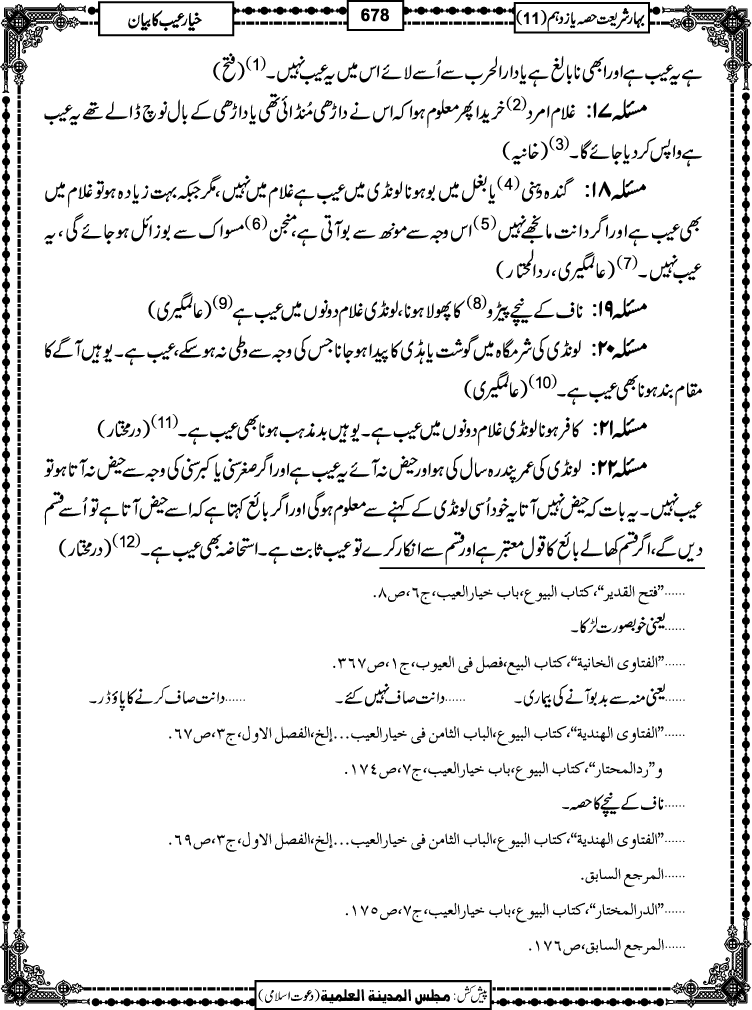 بہار شریعت حصہ یازدہم (11)
678
خیار عیب کا بیان
ہے یہ عیب ہے اور ابھی نابالغ ہے یا دارالحرب سے اُسے لائے اس میں یہ عیب نہیں۔(1) (فتح)
مسئلہ ۱۷: غلام امرد(2) خریدا پھر معلوم ہوا کہ اس نے داڑھی مُنڈائی تھی یا داڑھی کے بال نوچ ڈالے تھے یہ عیب
ہے واپس کر دیا جائے گا۔(3) (خانیہ)
مسئلہ ۱۸: گندہ دہنی(4) یا بغل میں بو ہونا لونڈی میں عیب ہے غلام میں نہیں، مگر جبکہ بہت زیادہ ہو تو غلام میں
بھی عیب ہے اور اگر دانت مانجھے نہیں(5) اس وجہ سے مونھ سے بو آتی ہے، منجن(6) مسواک سے بو زائل ہو جائے گی، یہ
عیب نہیں۔(7) (عالمگیری، ردالمحتار)
مسئلہ ۱۹: ناف کے نیچے پیڑو(8) کا پھولا ہونا، لونڈی غلام دونوں میں عیب ہے(9) (عالمگیری)
مسئلہ ۲۰: لونڈی کی شرمگاہ میں گوشت یا ہڈی کا پیدا ہو جانا جس کی وجہ سے وطی نہ ہو سکے، عیب ہے۔ یوہیں آگے کا
مقام بند ہونا بھی عیب ہے۔(10) (عالمگیری)
مسئلہ ۲۱: کافر ہونا لونڈی غلام دونوں میں عیب ہے۔ یوہیں بد مذہب ہونا بھی عیب ہے۔(11) (درمختار)
مسئلہ ۲۲: لونڈی کی عمر پندرہ سال کی ہو اور حیض نہ آئے یہ عیب ہے اور اگر صغر سنی یا کبر سنی کی وجہ سے حیض نہ آتا ہو تو
عیب نہیں۔ یہ بات کہ حیض نہیں آتا یہ خود اُسی لونڈی کے کہنے سے معلوم ہوگی اور اگر بائع کہتا ہے کہ اسے حیض آتا ہے تو اُسے قسم
دیں گے، اگر قسم کھا لے بائع کا قول معتبر ہے اور قسم سے انکار کرے تو عیب ثابت ہے۔ استحاضہ بھی عیب ہے۔(12) (درمختار)
......”الفتح القدیر“، کتاب البیوع، باب خیار العیب، ج۶، ص۸.
......یعنی خوبصورت لڑکا۔
......”الفتاوی الخانیة“، کتاب البیع، فصل فی العیوب، ج۱، ص۳۶۷.
......یعنی منہ سے بدبو آنے کی بیماری۔ ......دانت صاف نہیں کئے۔ ......دانت صاف کرنے کا پاؤڈر۔
......”الفتاوی الهندیة“، کتاب البیوع، الباب الثامن فی خیار العیب...إلخ، الفصل الاول، ج۳، ص۶۷.
و”ردالمحتار“، کتاب البیوع، باب خیار العیب، ج۷، ص۱۷٤.
......ناف کے نیچے کا حصہ۔
......”الفتاوی الهندیة“، کتاب البیوع، الباب الثامن فی خیار العیب...إلخ، الفصل الاول، ج۳، ص۶۹.
......المرجع السابق.
......”الدرالمختار“، کتاب البیوع، باب خیار العیب، ج۷، ص۱۷۵.
......المرجع السابق، ص۱۷۶.
پیش کش: مجلس المدینة العلمیة (دعوت اسلامی)